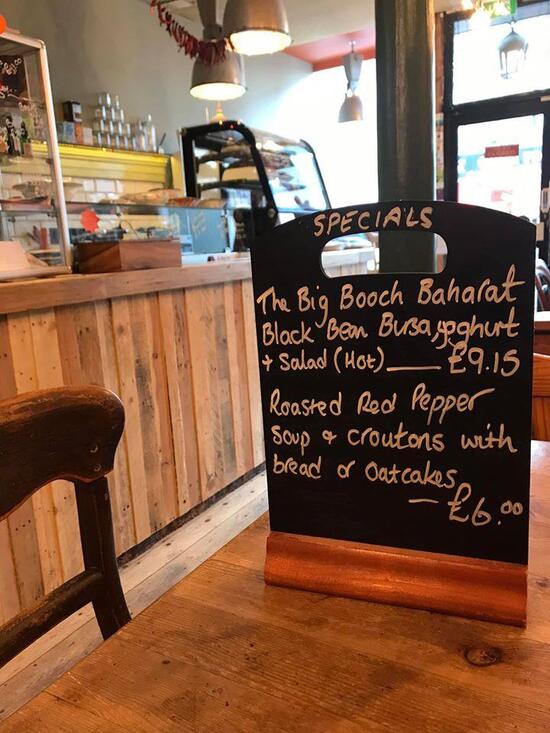 SPECIALS
The Big Booch Baharat
Black Bean Bursa, yoghurt
+ Salad (Hot) — £9.15
Roasted Red Pepper
Soup & croutons with
bread or Oatcakes
— £6.00